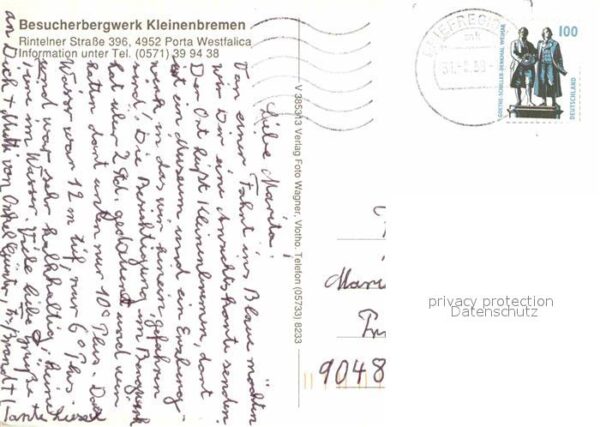 Besucherbergwerk Kleinenbremen
Rintelner Straße 396, 4952 Porta Westfalica
Information unter Tel. (0571) 39 94 38
Liebe Marita!
Von einer Fahrt ins Blaue möchten
wir Dir eine Ansichtskarte senden.
Der Ort heißt Kleinenbremen, dort
ist ein Museum und ein Erzberg-
werk, in das wir einem gefahren
sind! Die Besichtigung im Bergwerk
hat über 2 Std. gedauert und wir
hatten dort unten nur 10° Plus. Das
Wasser war 12 m tief, nur 6° Plus
und war sehr kalkhaltig, keine
im Wasser. Viele liebe Grüße
an Dich + Mutti von Onkel Günter,
Tante Liesel
V 385313 Verlag Foto Wagner, Vlotho. Telefon (05733) 8233
BRIEFREGION
100
GOETHE-SCHILLER-DENKMAL WEIMAR
DEUTSCHLAND
Mari
9048
privacy protection
Datenschutz